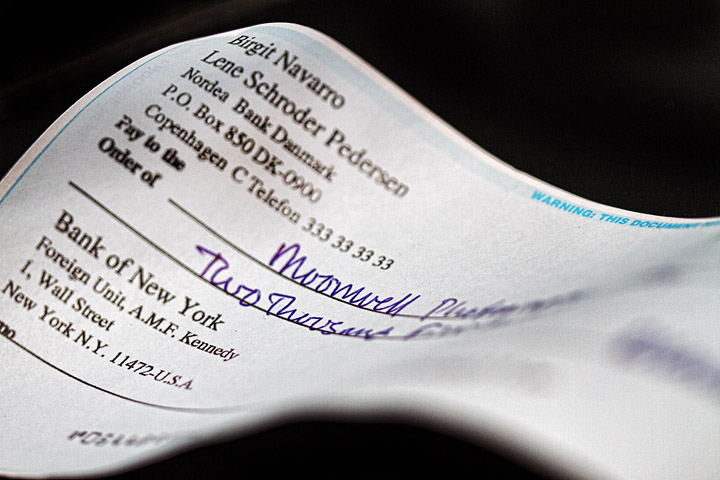 Birgit Navarro
Lene Schroder Pedersen
Nordea Bank Danmark
P.O. Box 850 DK-0900
Copenhagen C Telefon 333 33 33 33
WARNING: THIS DOCUMENT
Pay to the
Order of
Moonwell
Two Thousand
Bank of New York
Foreign Unit, A.M.F. Kennedy
1, Wall Street
New York N.Y. 11472-U.S.A.